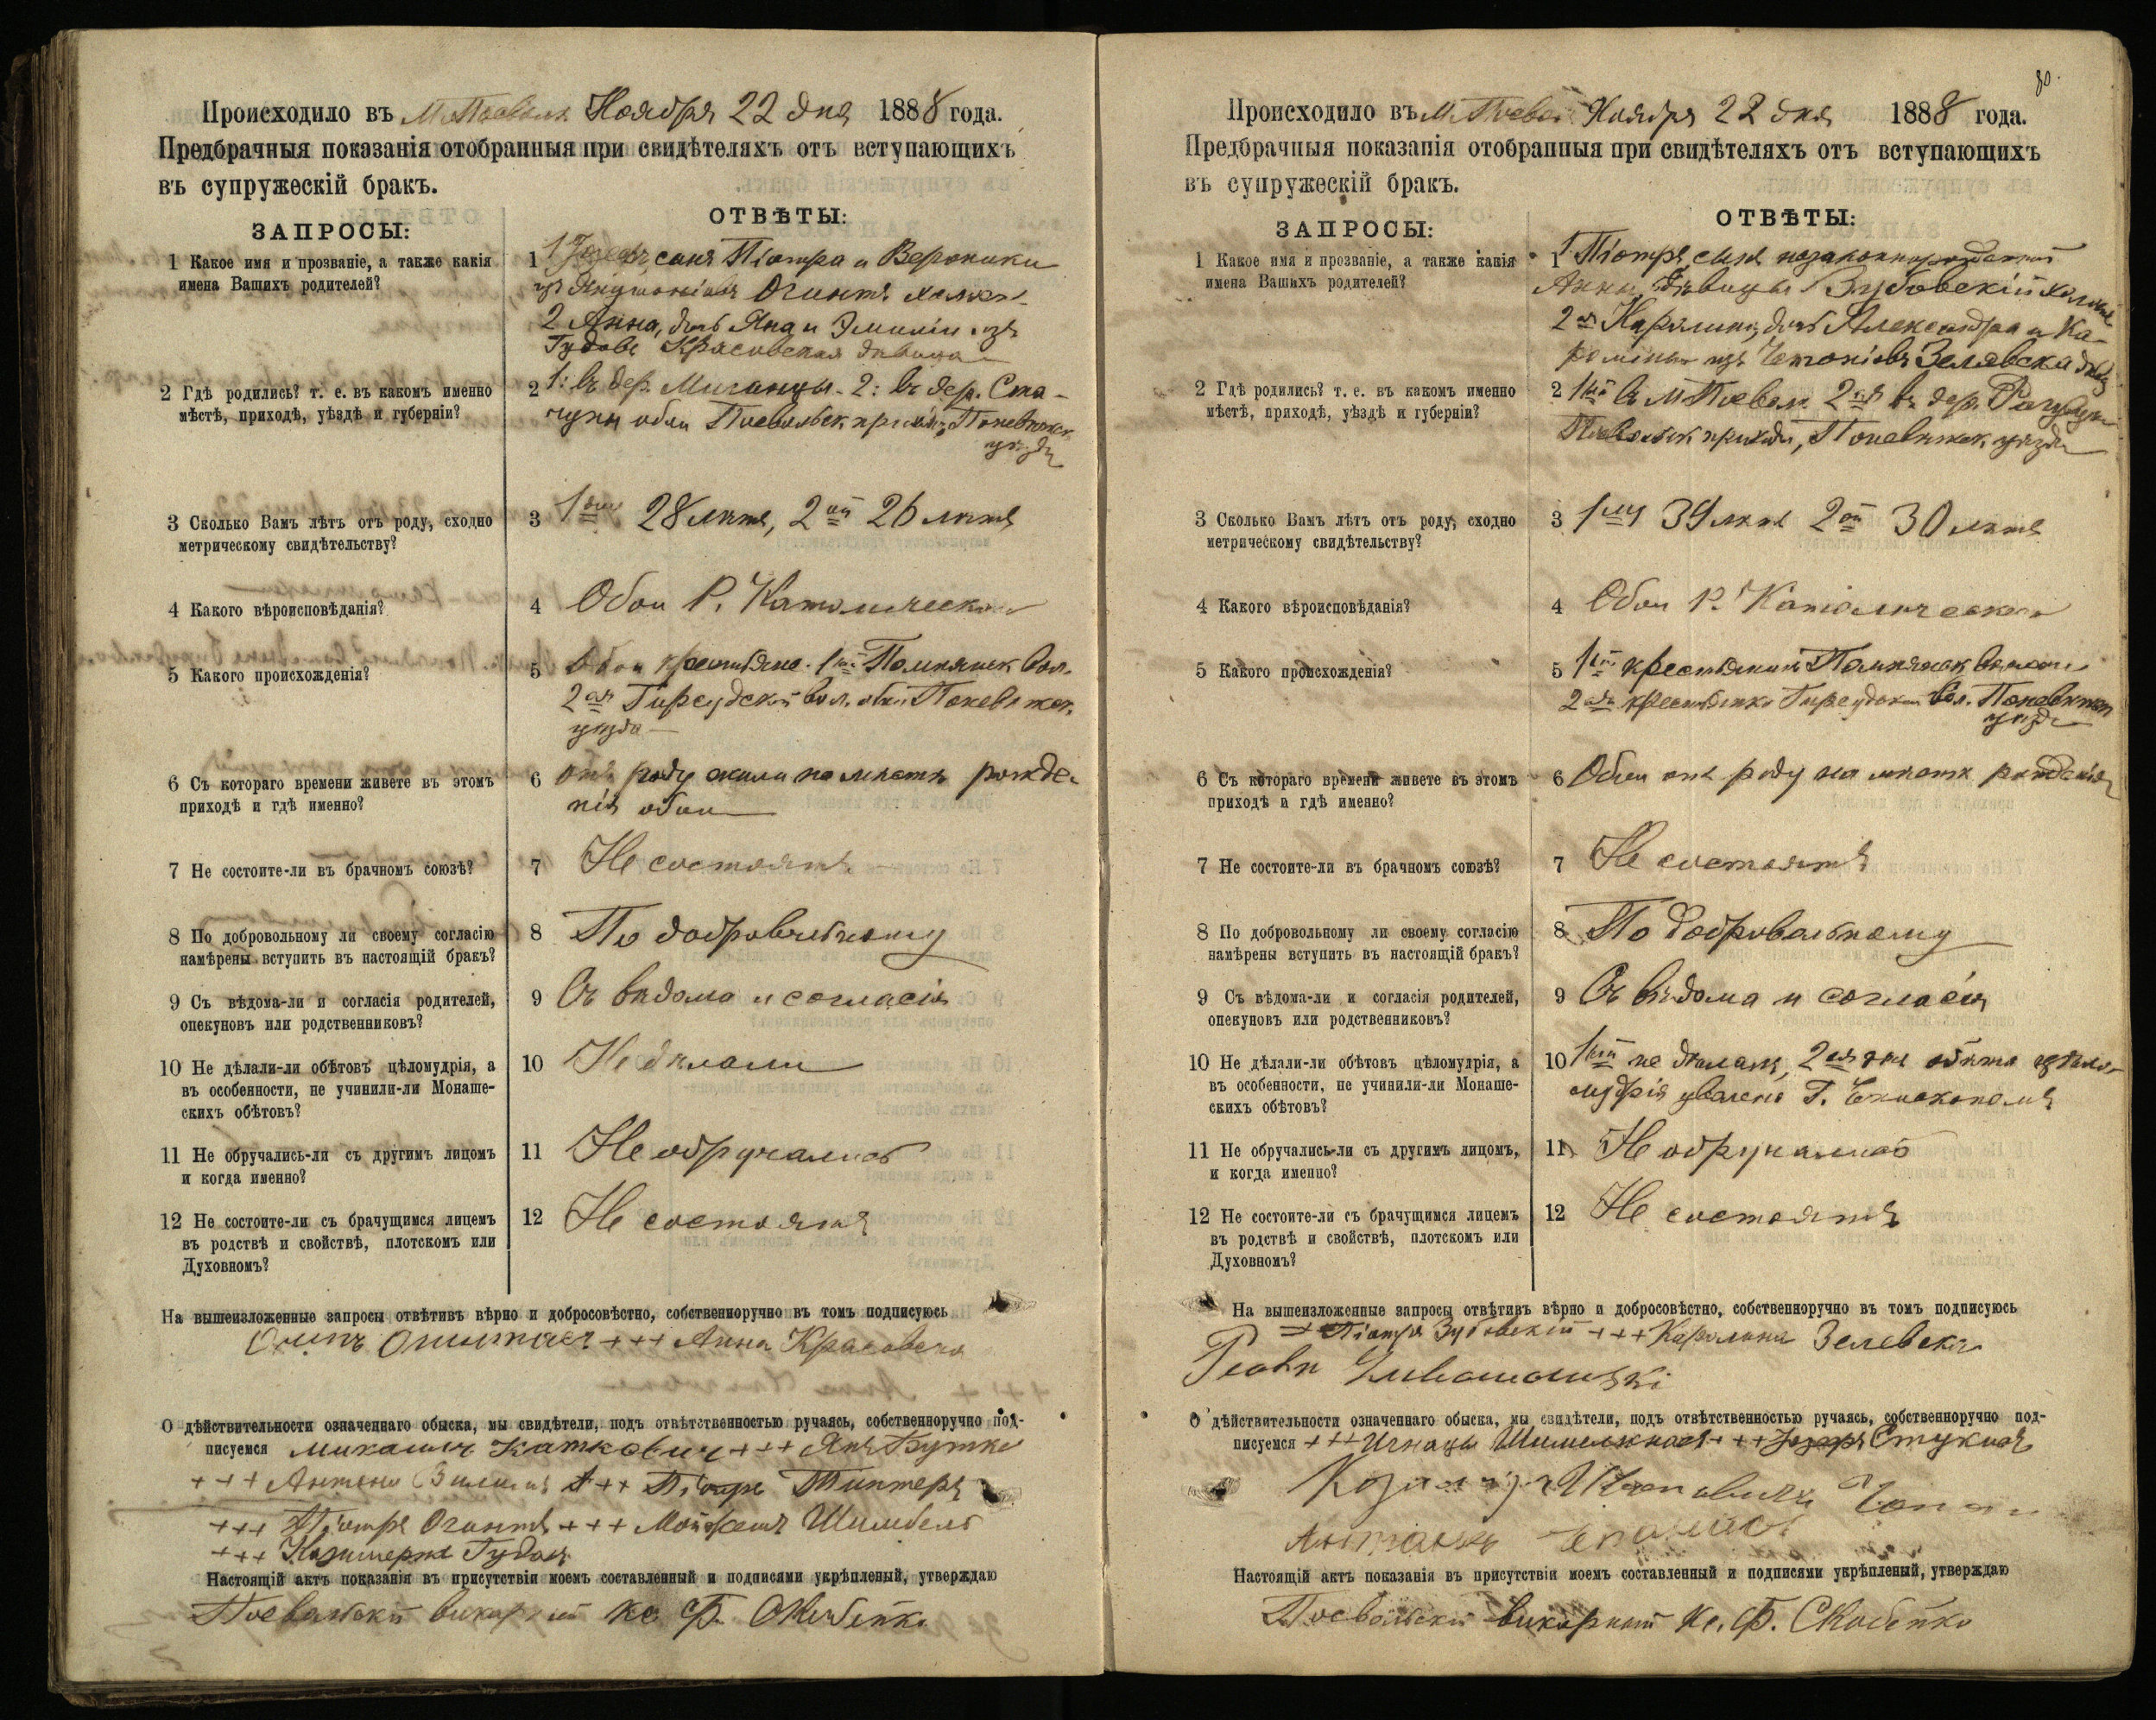 Происходило въ М. Поевол. Ноября 22 дня 1888 года.
Предбрачныя показанія отобранныя при свидѣтеляхъ отъ вступающихъ
въ супружескій бракъ.
ЗАПРОСЫ:
ОТВѢТЫ:
1 Какое имя и прозваніе, а также какія
имена Вашихъ родителей?
1 1 Іозефъ, сынъ Піотра и Вероники
изъ Огинтъ
2 Анна, дочь Яна и Эмиліи изъ
Гудовъ Красовская дѣвица
2 Гдѣ родились? т. е. въ какомъ именно
мѣстѣ, приходѣ, уѣздѣ и губерніи?
2 1: въ дер. Миганцы. 2: въ дер. Ста-
чуны обли Поевольск. прихода, Поневѣжск.
уѣзда
3 Сколько Вамъ лѣтъ отъ роду, сходно
метрическому свидѣтельству?
3 28 лѣтъ, 2ой 26 лѣтъ
4 Какого вѣроисповѣданія?
4 Обои Р. Католическаго
5 Какого происхожденія?
5 Обои крестьяне. 1ый Помпянск. вол.
2ая Гирсудской вол. обои Поневѣжск.
уѣзда
6 Съ котораго времени живете въ этомъ
приходѣ и гдѣ именно?
6 отъ роду жили на мѣстѣ рожде-
нія обои
7 Не состоите-ли въ брачномъ союзѣ?
7 Не состоятъ
8 По добровольному ли своему согласію
намѣрены вступить въ настоящій бракъ?
8 По добровольному
9 Съ вѣдома-ли и согласія родителей,
опекуновъ или родственниковъ?
9 Съ вѣдома и согласія
10 Не дѣлали-ли обѣтовъ цѣломудрія, а
въ особенности, не учинили-ли Монаше-
скихъ обѣтовъ?
10 Не дѣлали
11 Не обручались-ли съ другимъ лицомъ
и когда именно?
11 Не обручались
12 Не состоите-ли съ брачущимся лицемъ
въ родствѣ и свойствѣ, плотскомъ или
Духовномъ?
12 Не состоятъ
На вышеизложенные запросы отвѣтивъ вѣрно и добросовѣстно, собственноручно въ томъ подписуюсь
+++ Анна Красовска
О дѣйствительности означеннаго обыска, мы свидѣтели, подъ отвѣтственностью ручаясь, собственноручно под-
писуемся Михаилъ Катковичъ +++ Янъ Бутке
+++ Антони +++ Піотръ Тинтеръ
+++ Піотръ Огинтъ +++ Шимбель
+++ Казимержъ Гудасъ
Настоящій актъ показанія въ присутствіи моемъ составленный и подписями укрѣпленый, утверждаю
Поевольскій викарный кс. Ф. Скабейко
80.
Происходило въ М. Поевол. Ноября 22 дня 1888 года.
Предбрачныя показанія отобранныя при свидѣтеляхъ отъ вступающихъ
въ супружескій бракъ.
ЗАПРОСЫ:
ОТВѢТЫ:
1 Какое имя и прозваніе, а также какія
имена Вашихъ родителей?
1 1 Піотръ, сынъ незаконнорожденный
Анны, дѣвицы Зубовскій
2ая Каролина, дочь Александра и Ка-
ролины изъ Зелявска
2 Гдѣ родились? т. е. въ какомъ именно
мѣстѣ, приходѣ, уѣздѣ и губерніи?
2 1ый въ М. Поевол. 2ая въ дер.
Поевольск. прихода, Поневѣжск. уѣзда
3 Сколько Вамъ лѣтъ отъ роду, сходно
метрическому свидѣтельству?
3 1му 39 лѣтъ 2ой 30 лѣтъ
4 Какого вѣроисповѣданія?
4 Обои Р. Католическаго
5 Какого происхожденія?
5 1ый крестьянинъ Помпянск. волости
2ая крестьянка Гирсудской вол. Поневѣжск.
уѣзда
6 Съ котораго времени живете въ этомъ
приходѣ и гдѣ именно?
6 Обои отъ роду на мѣстѣ рожденія
7 Не состоите-ли въ брачномъ союзѣ?
7 Не состоятъ
8 По добровольному ли своему согласію
намѣрены вступить въ настоящій бракъ?
8 По добровольному
9 Съ вѣдома-ли и согласія родителей,
опекуновъ или родственниковъ?
9 Съ вѣдома и согласія
10 Не дѣлали-ли обѣтовъ цѣломудрія, а
въ особенности, не учинили-ли Монаше-
скихъ обѣтовъ?
10 1ый не дѣлалъ, 2ая обѣта цѣло-
мудрія уволена Г. Епископомъ
11 Не обручались-ли съ другимъ лицомъ,
и когда именно?
11 Не обручались
12 Не состоите-ли съ брачущимся лицемъ
въ родствѣ и свойствѣ, плотскомъ или
Духовномъ?
12 Не состоятъ
На вышеизложенные запросы отвѣтивъ вѣрно и добросовѣстно, собственноручно въ томъ подписуюсь
Піотръ Зубовскій +++ Каролина Зелевска
О дѣйствительности означеннаго обыска, мы свидѣтели, подъ отвѣтственностью ручаясь, собственноручно под-
писуемся +++ Игнацы +++ Іозефъ Стукасъ
Настоящій актъ показанія въ присутствіи моемъ составленный и подписями укрѣпленый, утверждаю
Поевольскій викарный Кс. Ф. Скабейко